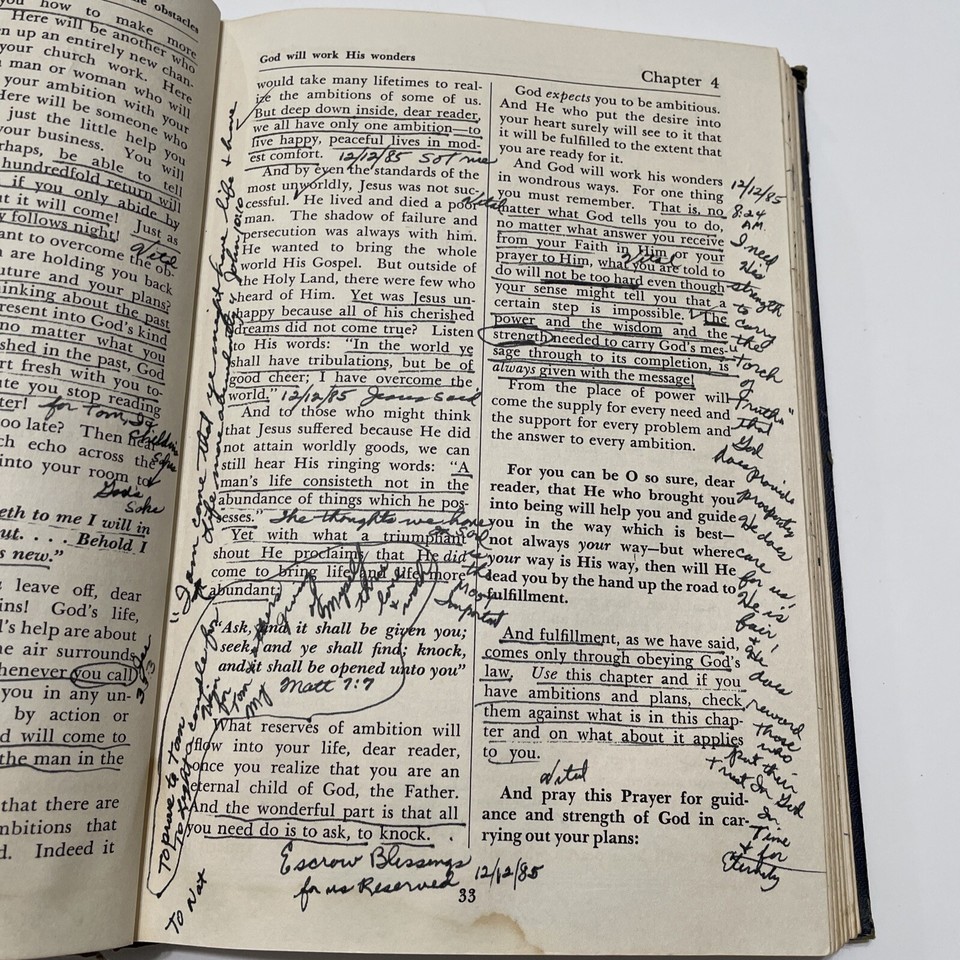 the obstacles
how to make more
Here will be another who
n up an entirely new chan-
your church work. Here
man or woman who will
your ambition with your
Here will be someone who
just the little help you
your business. You will
rhaps, be able to tell
hundredfold return will
if you only abide by
ut it will come! Just as
y follows night!
Vital
ant to overcome the ob-
are holding you back
uture and your plans?
hinking about the past
resent into God's kind
no matter what you
shed in the past, God
rt fresh with you to-
ute you stop reading
ter!
for Tom,
oo late? Then hear
ch echo across the
into your room to
God's
Sake
eth to me I will in
ut. . . . Behold I
s new."
leave off, dear
ins! God's life,
l's help are about
he air surrounds
henever you call
you in any un-
by action or
d will come to
the man in the
that there are
mbitions that
d. Indeed it
God will work His wonders
Chapter 4
would take many lifetimes to real-
ize the ambitions of some of us.
But deep down inside, dear reader,
we all have only one ambition—to
live happy, peaceful lives in mod-
est comfort. 12/12/85 So t me
And by even the standards of the
most unworldly, Jesus was not suc-
cessful. He lived and died a poor
man. The shadow of failure and
persecution was always with him.
He wanted to bring the whole
world His Gospel. But outside of
the Holy Land, there were few who
heard of Him. Yet was Jesus un-
happy because all of his cherished
dreams did not come true? Listen
to His words: "In the world ye
shall have tribulations, but be of
good cheer; I have overcome the
world." 12/12/85 Jesus Said
And to those who might think
that Jesus suffered because He did
not attain worldly goods, we can
still hear His ringing words: "A
man's life consisteth not in the
abundance of things which he pos-
sesses." The thoughts we have
Yet with what a triumphant
shout He proclaims that He did
come to bring life and life more
abundant:
is
the
Most
Important
"Ask, and it shall be given you;
seek, and ye shall find; knock,
and it shall be opened unto you"
Matt 7:7
What reserves of ambition will
flow into your life, dear reader,
once you realize that you are an
eternal child of God, the Father.
And the wonderful part is that all
you need do is to ask, to knock.
Escrow Blessings
for us Reserved 12/12/85
"I am come that ye might have life & have
it more abundantly" John 10:10
To Nat
God expects you to be ambitious.
And He who put the desire into
your heart surely will see to it that
it will be fulfilled to the extent that
you are ready for it.
And God will work his wonders
in wondrous ways. For one thing
you must remember. That is, no
Vital
matter what God tells you to do,
no matter what answer you receive
from your Faith in Him or your
prayer to Him, what you are told to
Vital
do will not be too hard even though
your sense might tell you that a
certain step is impossible. The
power and the wisdom and the
strength needed to carry God's mes-
sage through to its completion, is
always given with the message!
From the place of power will
come the supply for every need and
the support for every problem and
the answer to every ambition.
For you can be O so sure, dear
reader, that He who brought you
into being will help you and guide
you in the way which is best—
not always your way—but where
your way is His way, then will He
lead you by the hand up the road to
fulfillment.
And fulfillment, as we have said,
comes only through obeying God's
law. Use this chapter and if you
have ambitions and plans, check
them against what is in this chap-
ter and on what about it applies
to you.
Vital
And pray this Prayer for guid-
ance and strength of God in car-
rying out your plans:
12/12/85
8:24
AM.
I need
His
strength
to
carry
the
Torch
of
Truth"
that
God
does provide
prosperity
He does
care
for us,
He is
fair
&
He
does
reward
Those
who
put their
trust In God
In
Time
& for
Eternity
33